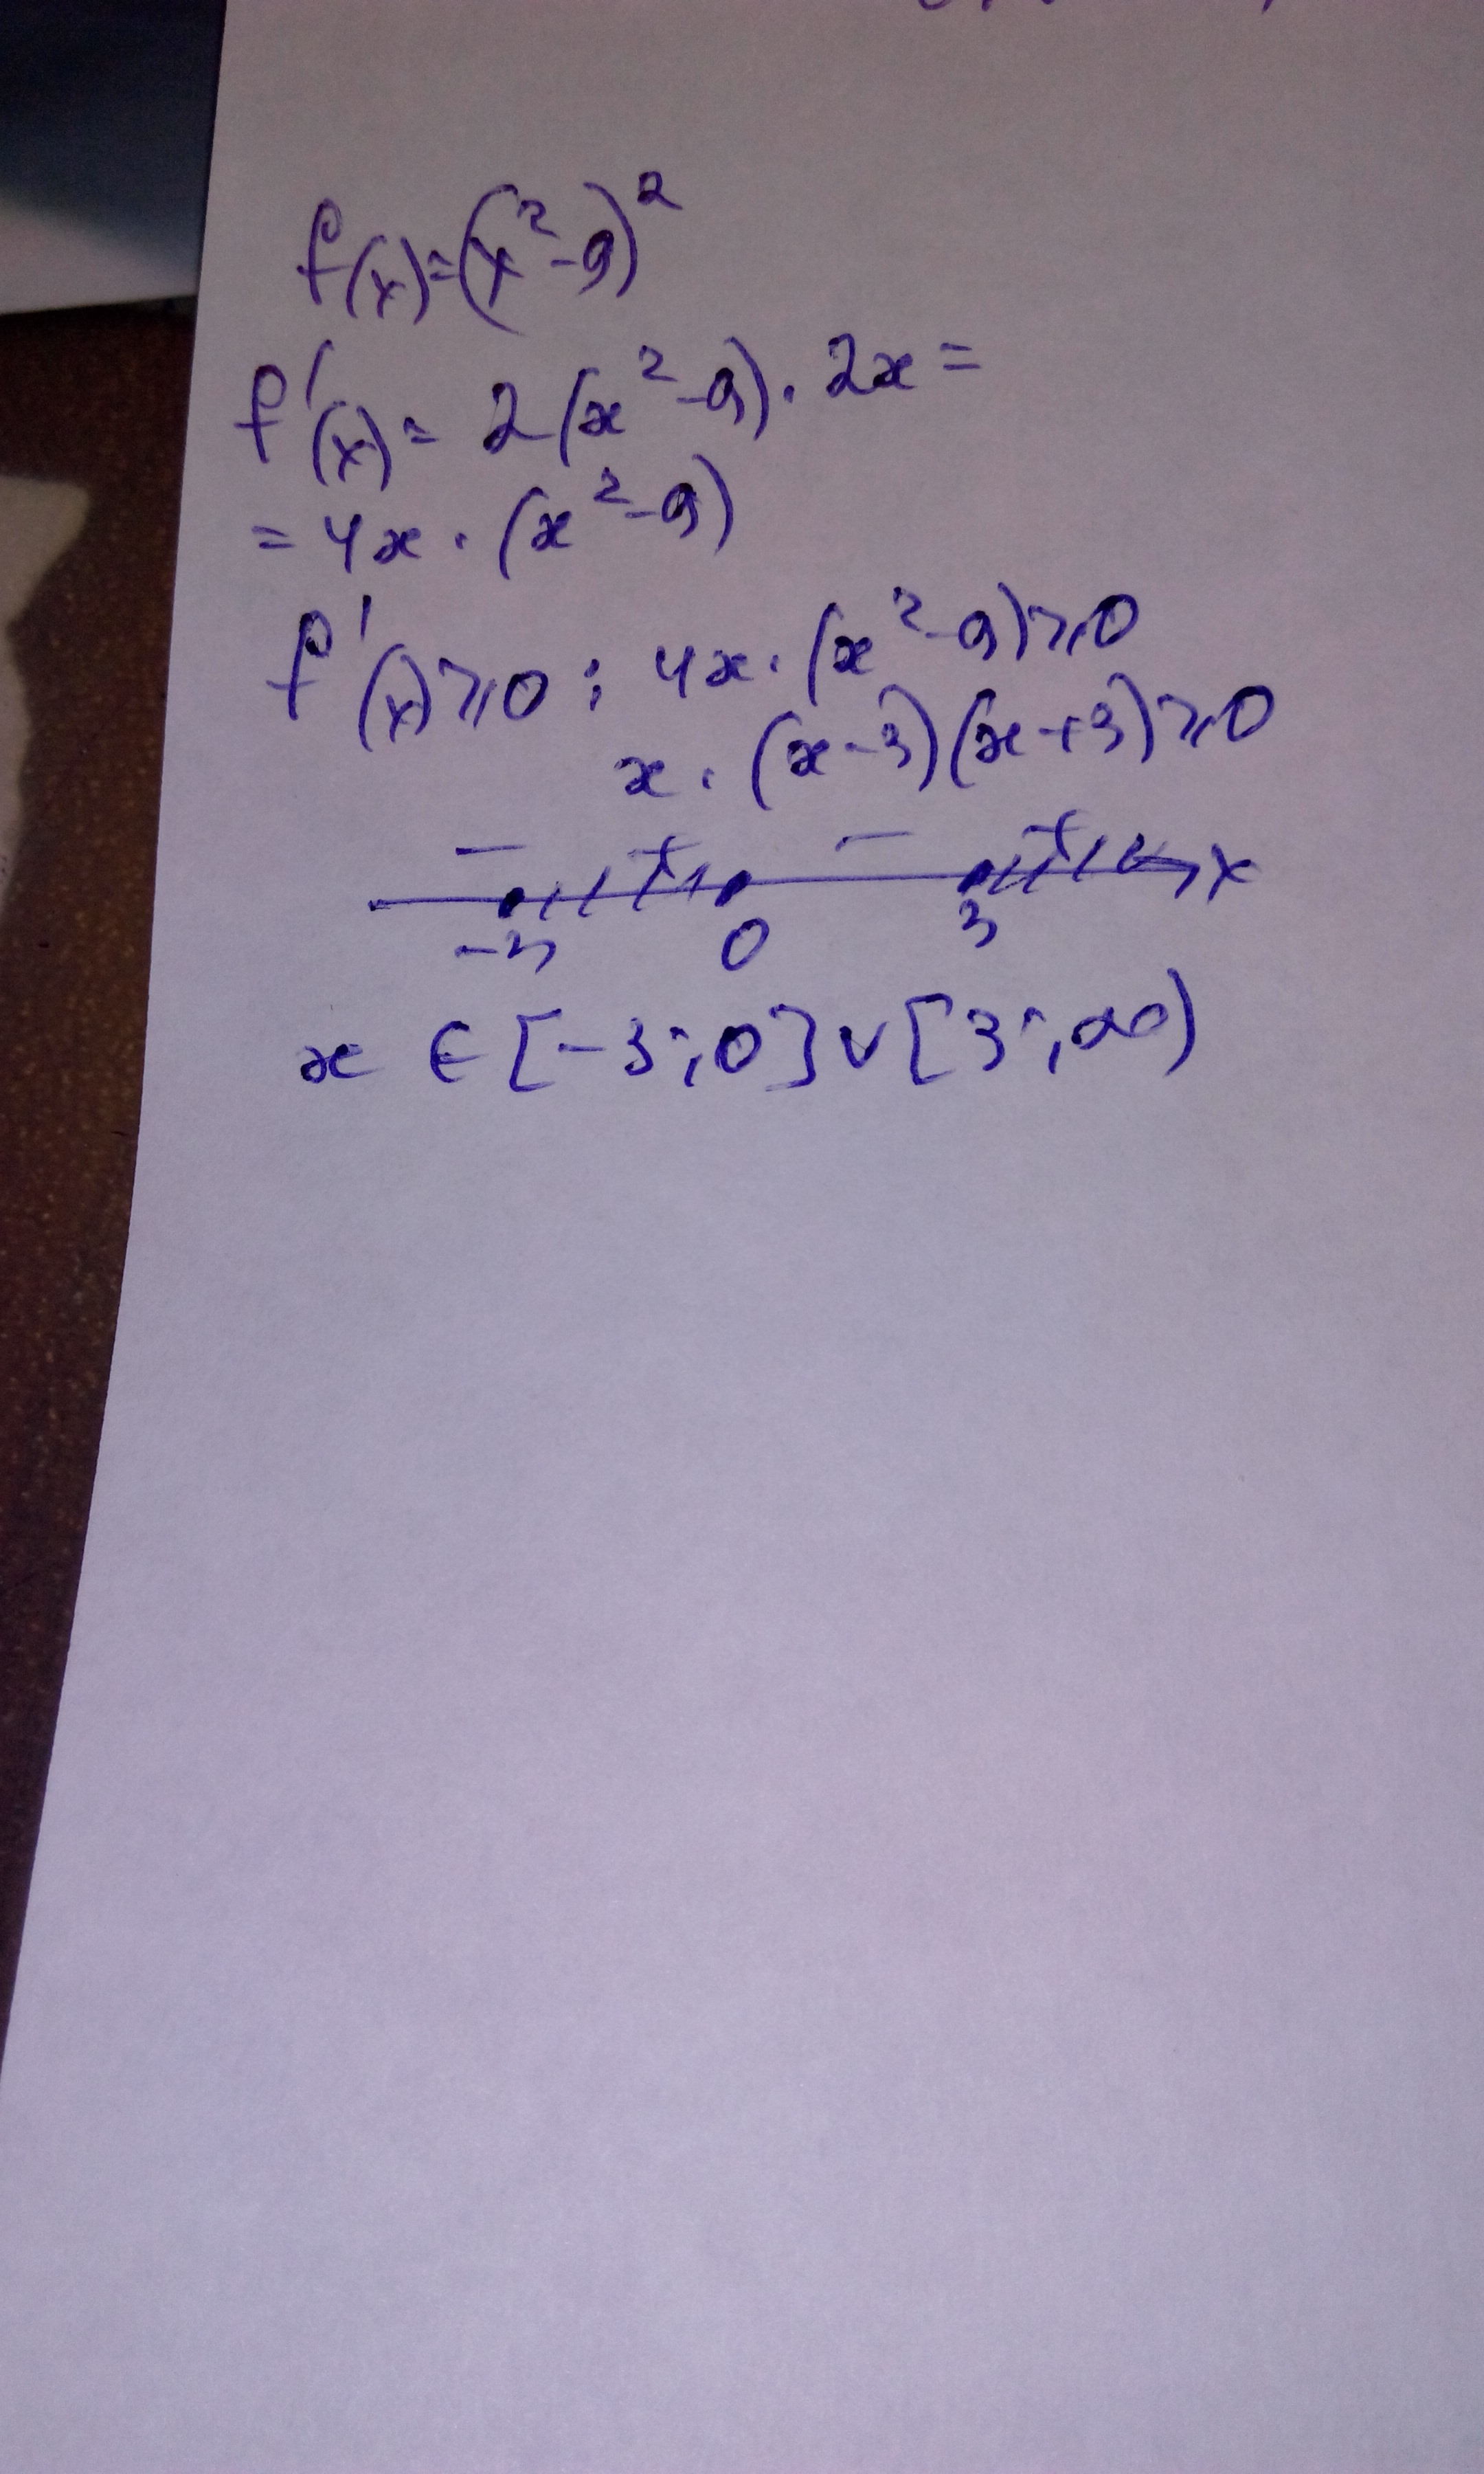 f(x)=(x²-9)²
f'(x)= 2(x²-9)·2x=
=4x·(x²-9)
f'(x)⩾0; 4x·(x²-9)⩾0
x·(x-3)(x+3)⩾0
- + - + x
-3 0 3
x ∈ [-3;0]∪[3;∞)